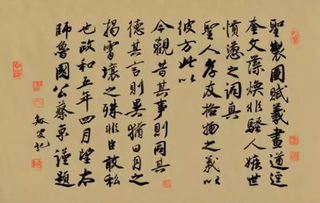 聖製園賦羲畫道運
奎文藻焕非騷人嫉世
憤懣之詞真
聖人孝友格物之義以
彼方此以
今觀昔其事則同其
德其言則異猶日月之
揭霄壤之殊非臣敢私
也政和五年四月望太
師魯國公蔡京謹題